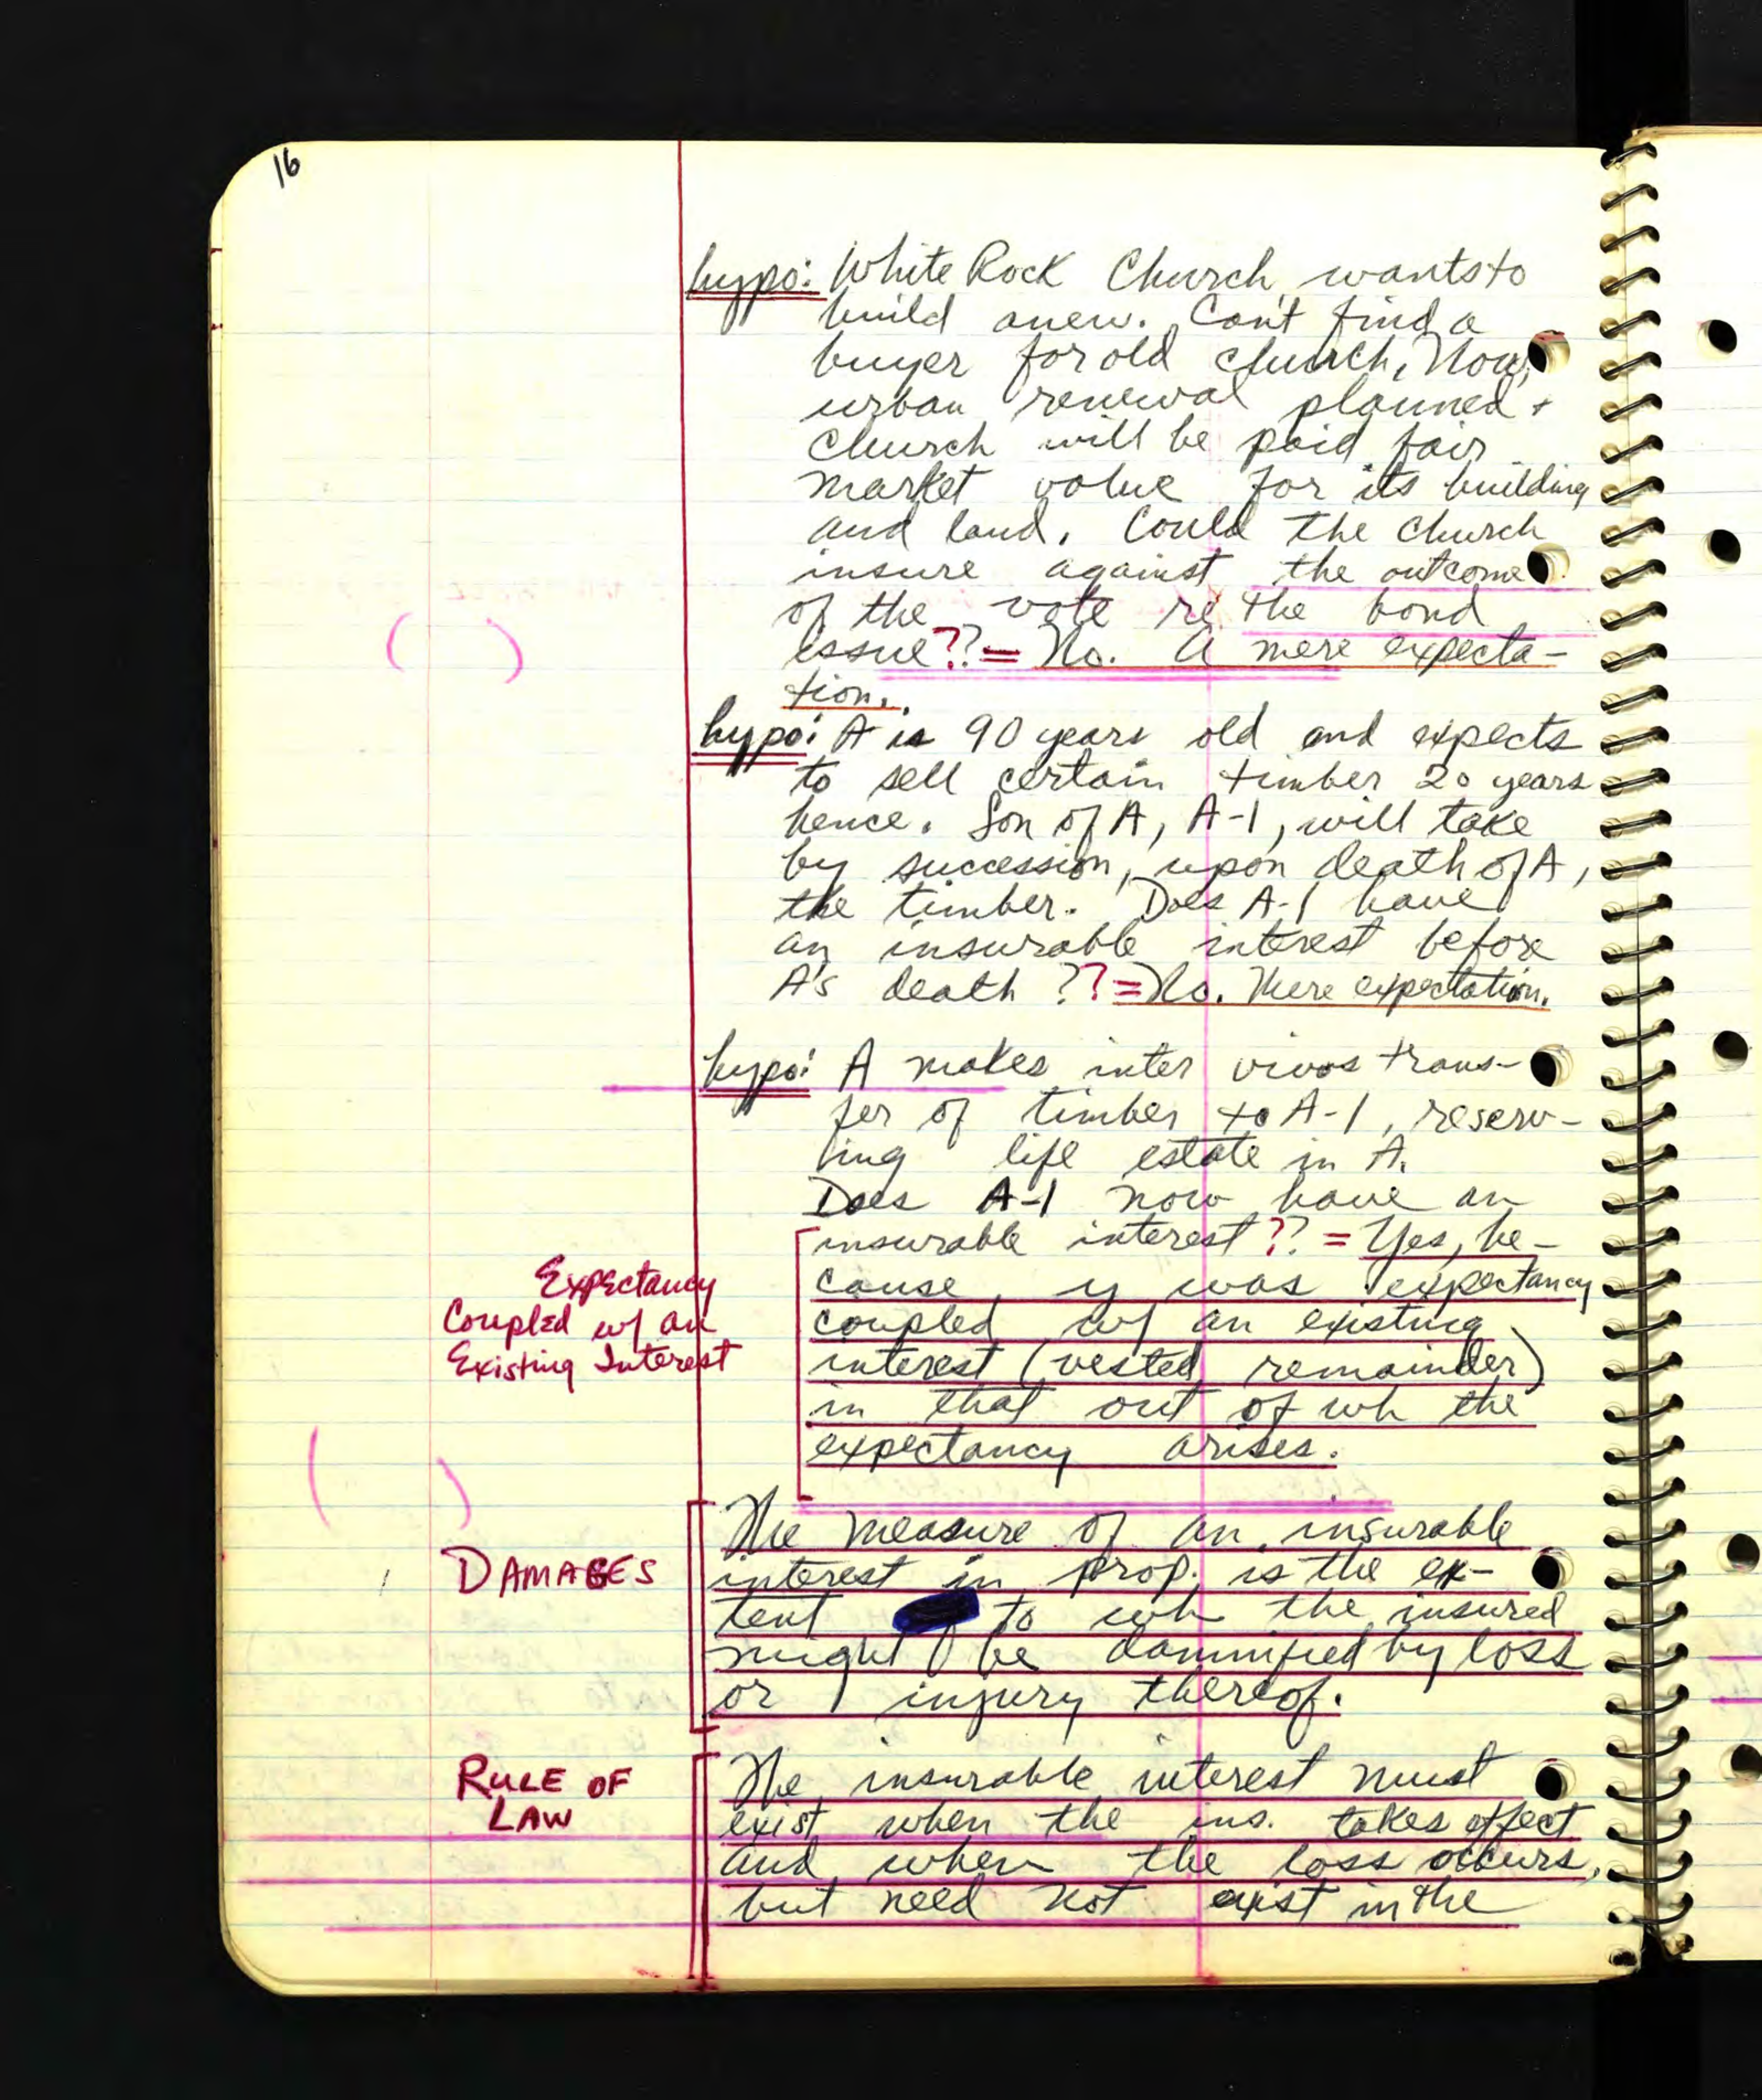 16
hypo: White Rock Church wants to
build anew. Can't find a
buyer for old church. Now,
urban renewal planned +
church will be paid fair
market value for its building
and land. Could the church
insure against the outcome
of the vote re the bond
issue?? = No. A mere expecta-
tion.
hypo: A is 90 years old and expects
to sell certain timber 20 years
hence. Son of A, A-1, will take
by succession, upon death of A,
the timber. Does A-1 have
an insurable interest before
A's death ?? = No. Mere expectation.
hypo: A makes inter vivos trans-
fer of timber to A-1, reserv-
ing life estate in A.
Does A-1 now have an
insurable interest?? = Yes, be-
cause y was expectancy
coupled w/ an existing
interest (vested remainder)
in that out of wh the
expectancy arises.
Expectancy
Coupled w/ an
Existing Interest
DAMAGES
The measure of an insurable
interest in prop. is the ex-
tent to wh the insured
might be damnified by loss
or injury thereof.
RULE OF
LAW
The insurable interest must
exist when the ins. takes effect
and when the loss occurs,
but need not exist in the